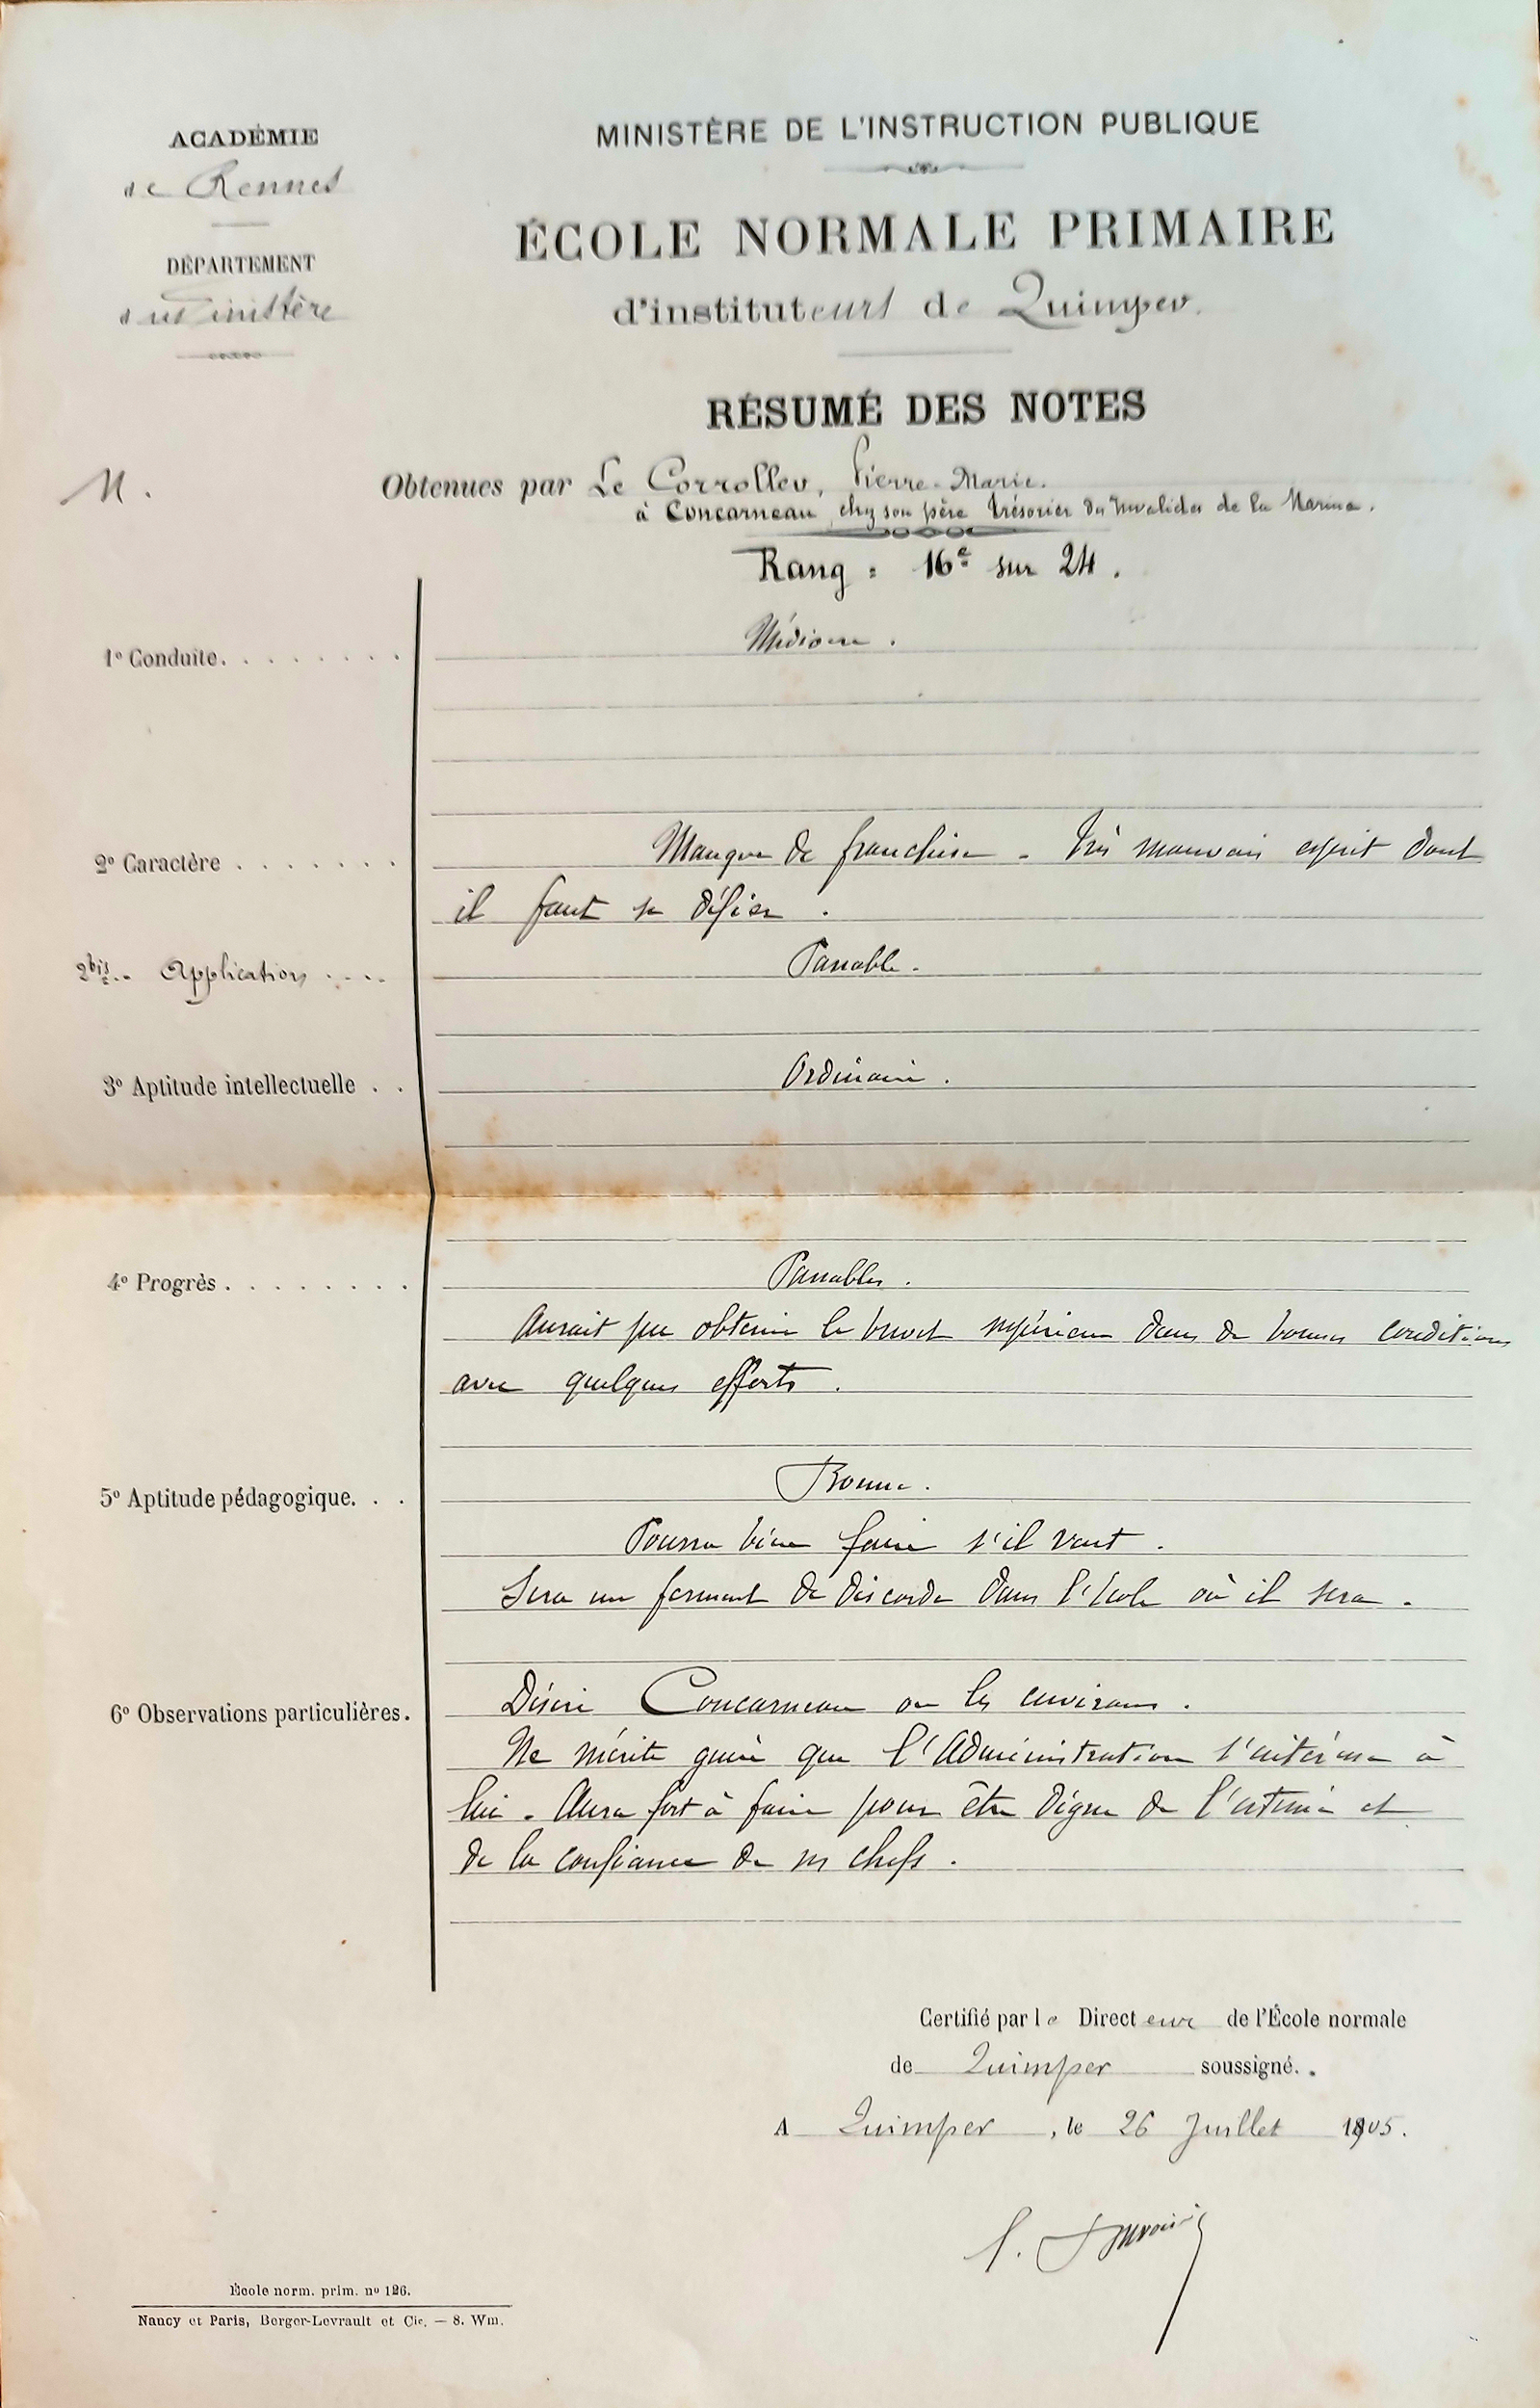 ACADÉMIE
de Rennes
DÉPARTEMENT
du Finistère
MINISTÈRE DE L'INSTRUCTION PUBLIQUE
ÉCOLE NORMALE PRIMAIRE
d'instituteurs de Quimper.
RÉSUMÉ DES NOTES
M. Obtenues par Le Corroller, Pierre-Marie.
à Concarneau, chez son père trésorier des Invalides de la Marine.
Rang : 16e sur 24.
1º Conduite. . . . . . . . Médiocre.
2º Caractère . . . . . . . Manque de franchise - Très mauvais esprit dont
il faut se défier.
2bis.. Application .... Passable.
3º Aptitude intellectuelle . . Ordinaire.
4º Progrès . . . . . . . . Passables.
Aurait pu obtenir le brevet supérieur dans de bonnes conditions
avec quelques efforts.
5º Aptitude pédagogique. . . Bonne.
Pourra bien faire s'il veut.
Sera un ferment de discorde dans l'école où il sera.
6º Observations particulières. Désire Concarneau ou les environs.
Ne mérite guère que l'Administration s'intéresse à
lui. Aura fort à faire pour être digne de l'estime et
de la confiance de ses chefs.
Certifié par le Directeur de l'École normale
de Quimper soussigné.
A Quimper, le 26 Juillet 1905.
École norm. prim. nº 126.
Nancy et Paris, Berger-Levrault et Cie. — 8. Wm.